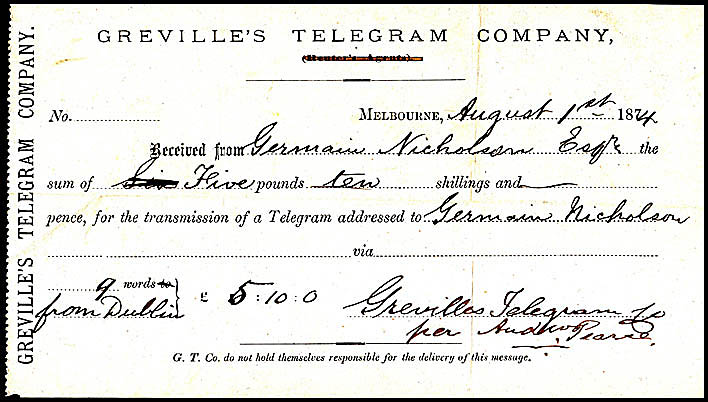 GREVILLE'S TELEGRAM COMPANY.
GREVILLE'S TELEGRAM COMPANY,
(Reuter's Agents)
No. MELBOURNE, August 1st 1874
Received from Germain Nicholson Esqr the
sum of Six Five pounds ten shillings and —
pence, for the transmission of a Telegram addressed to Germain Nicholson
via
9 words to
from Dublin } £ 5:10:0 Grevilles Telegram Co
per Andw Pearse.
G. T. Co. do not hold themselves responsible for the delivery of this message.